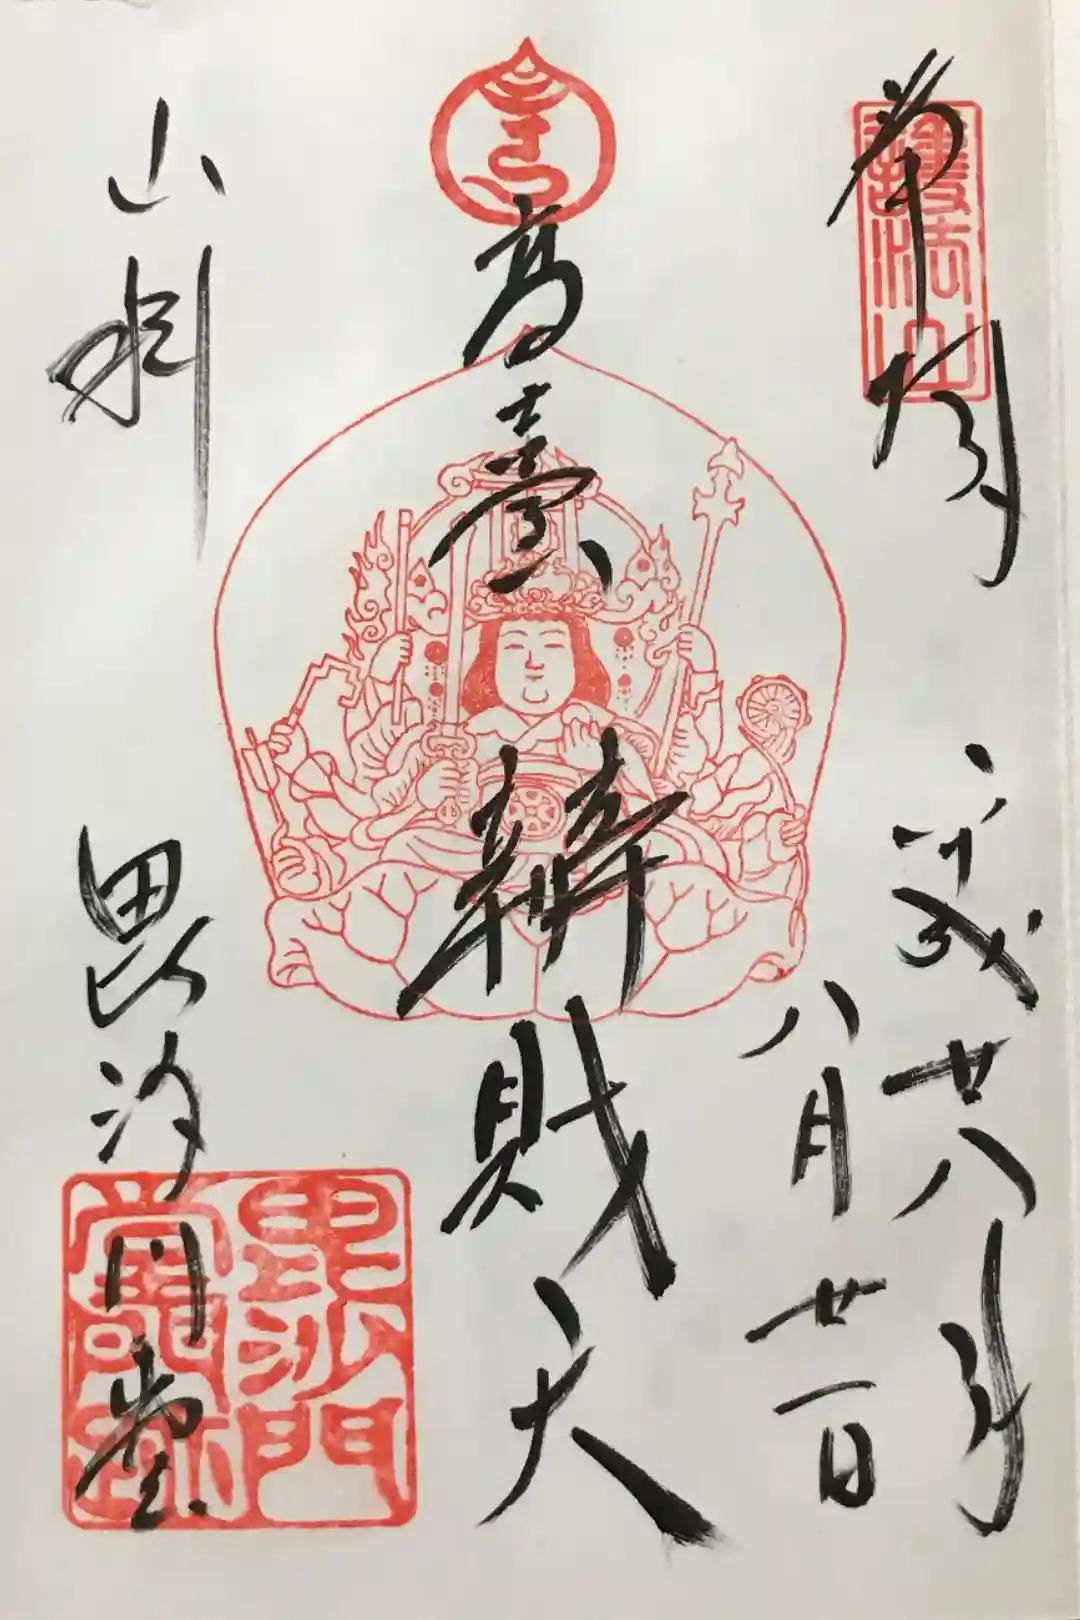 奉拝
護法山
平成廿八年
八月廿一日
高臺辯財天
山科
毘沙門堂
毘沙門